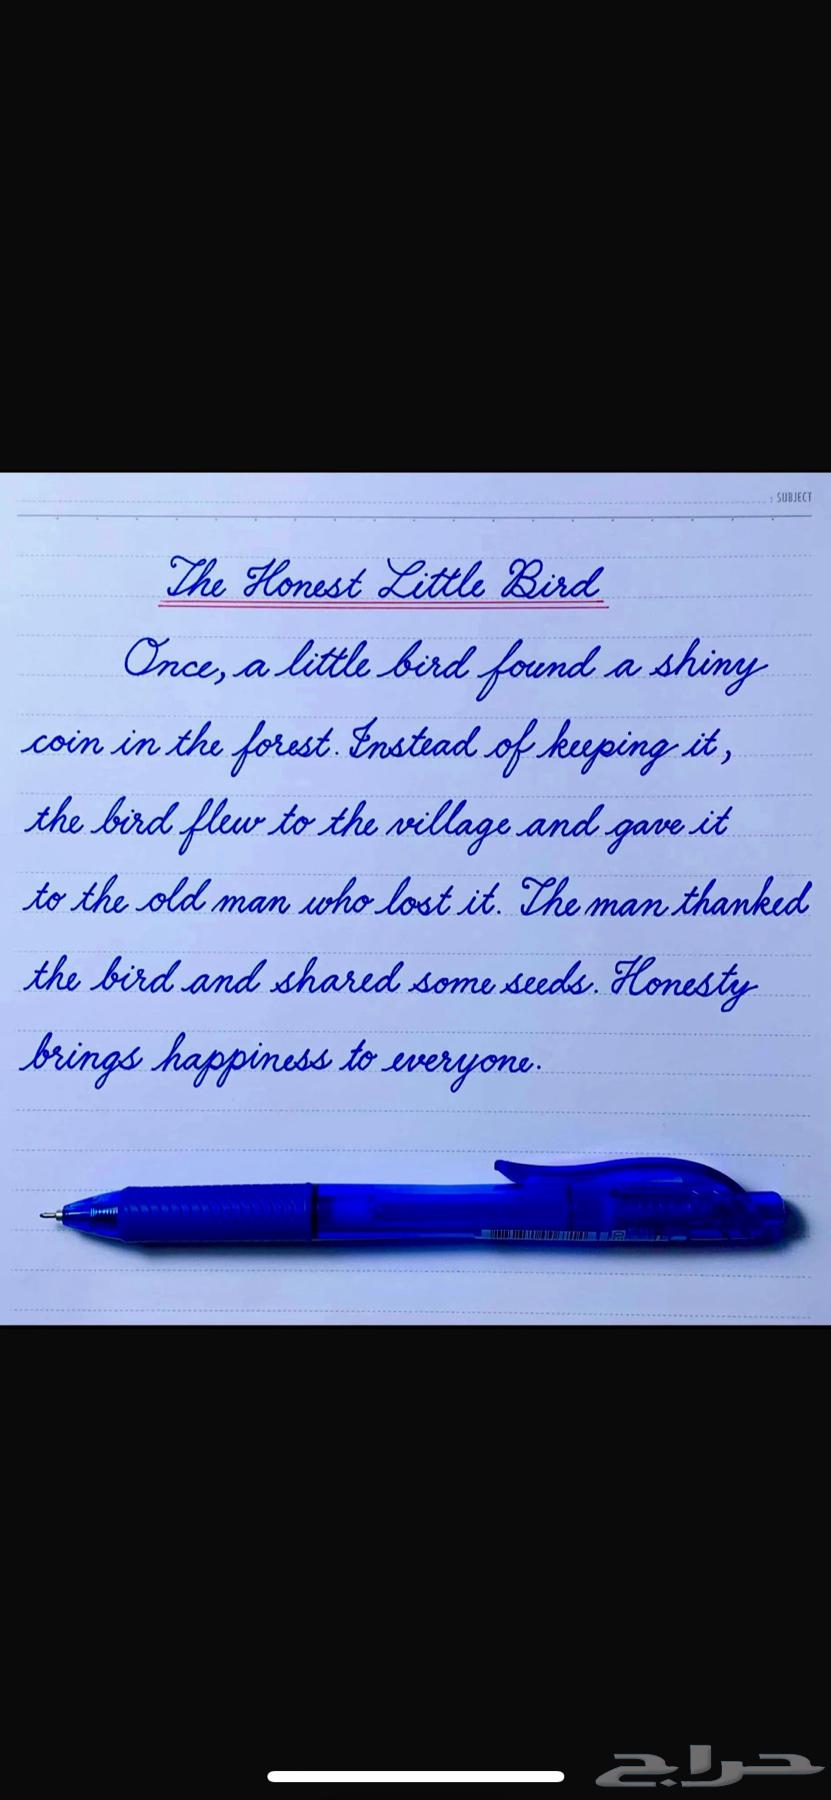 : SUBJECT
The Honest Little Bird
Once, a little bird found a shiny
coin in the forest. Instead of keeping it,
the bird flew to the village and gave it
to the old man who lost it. The man thanked
the bird and shared some seeds. Honesty
brings happiness to everyone.
حراج